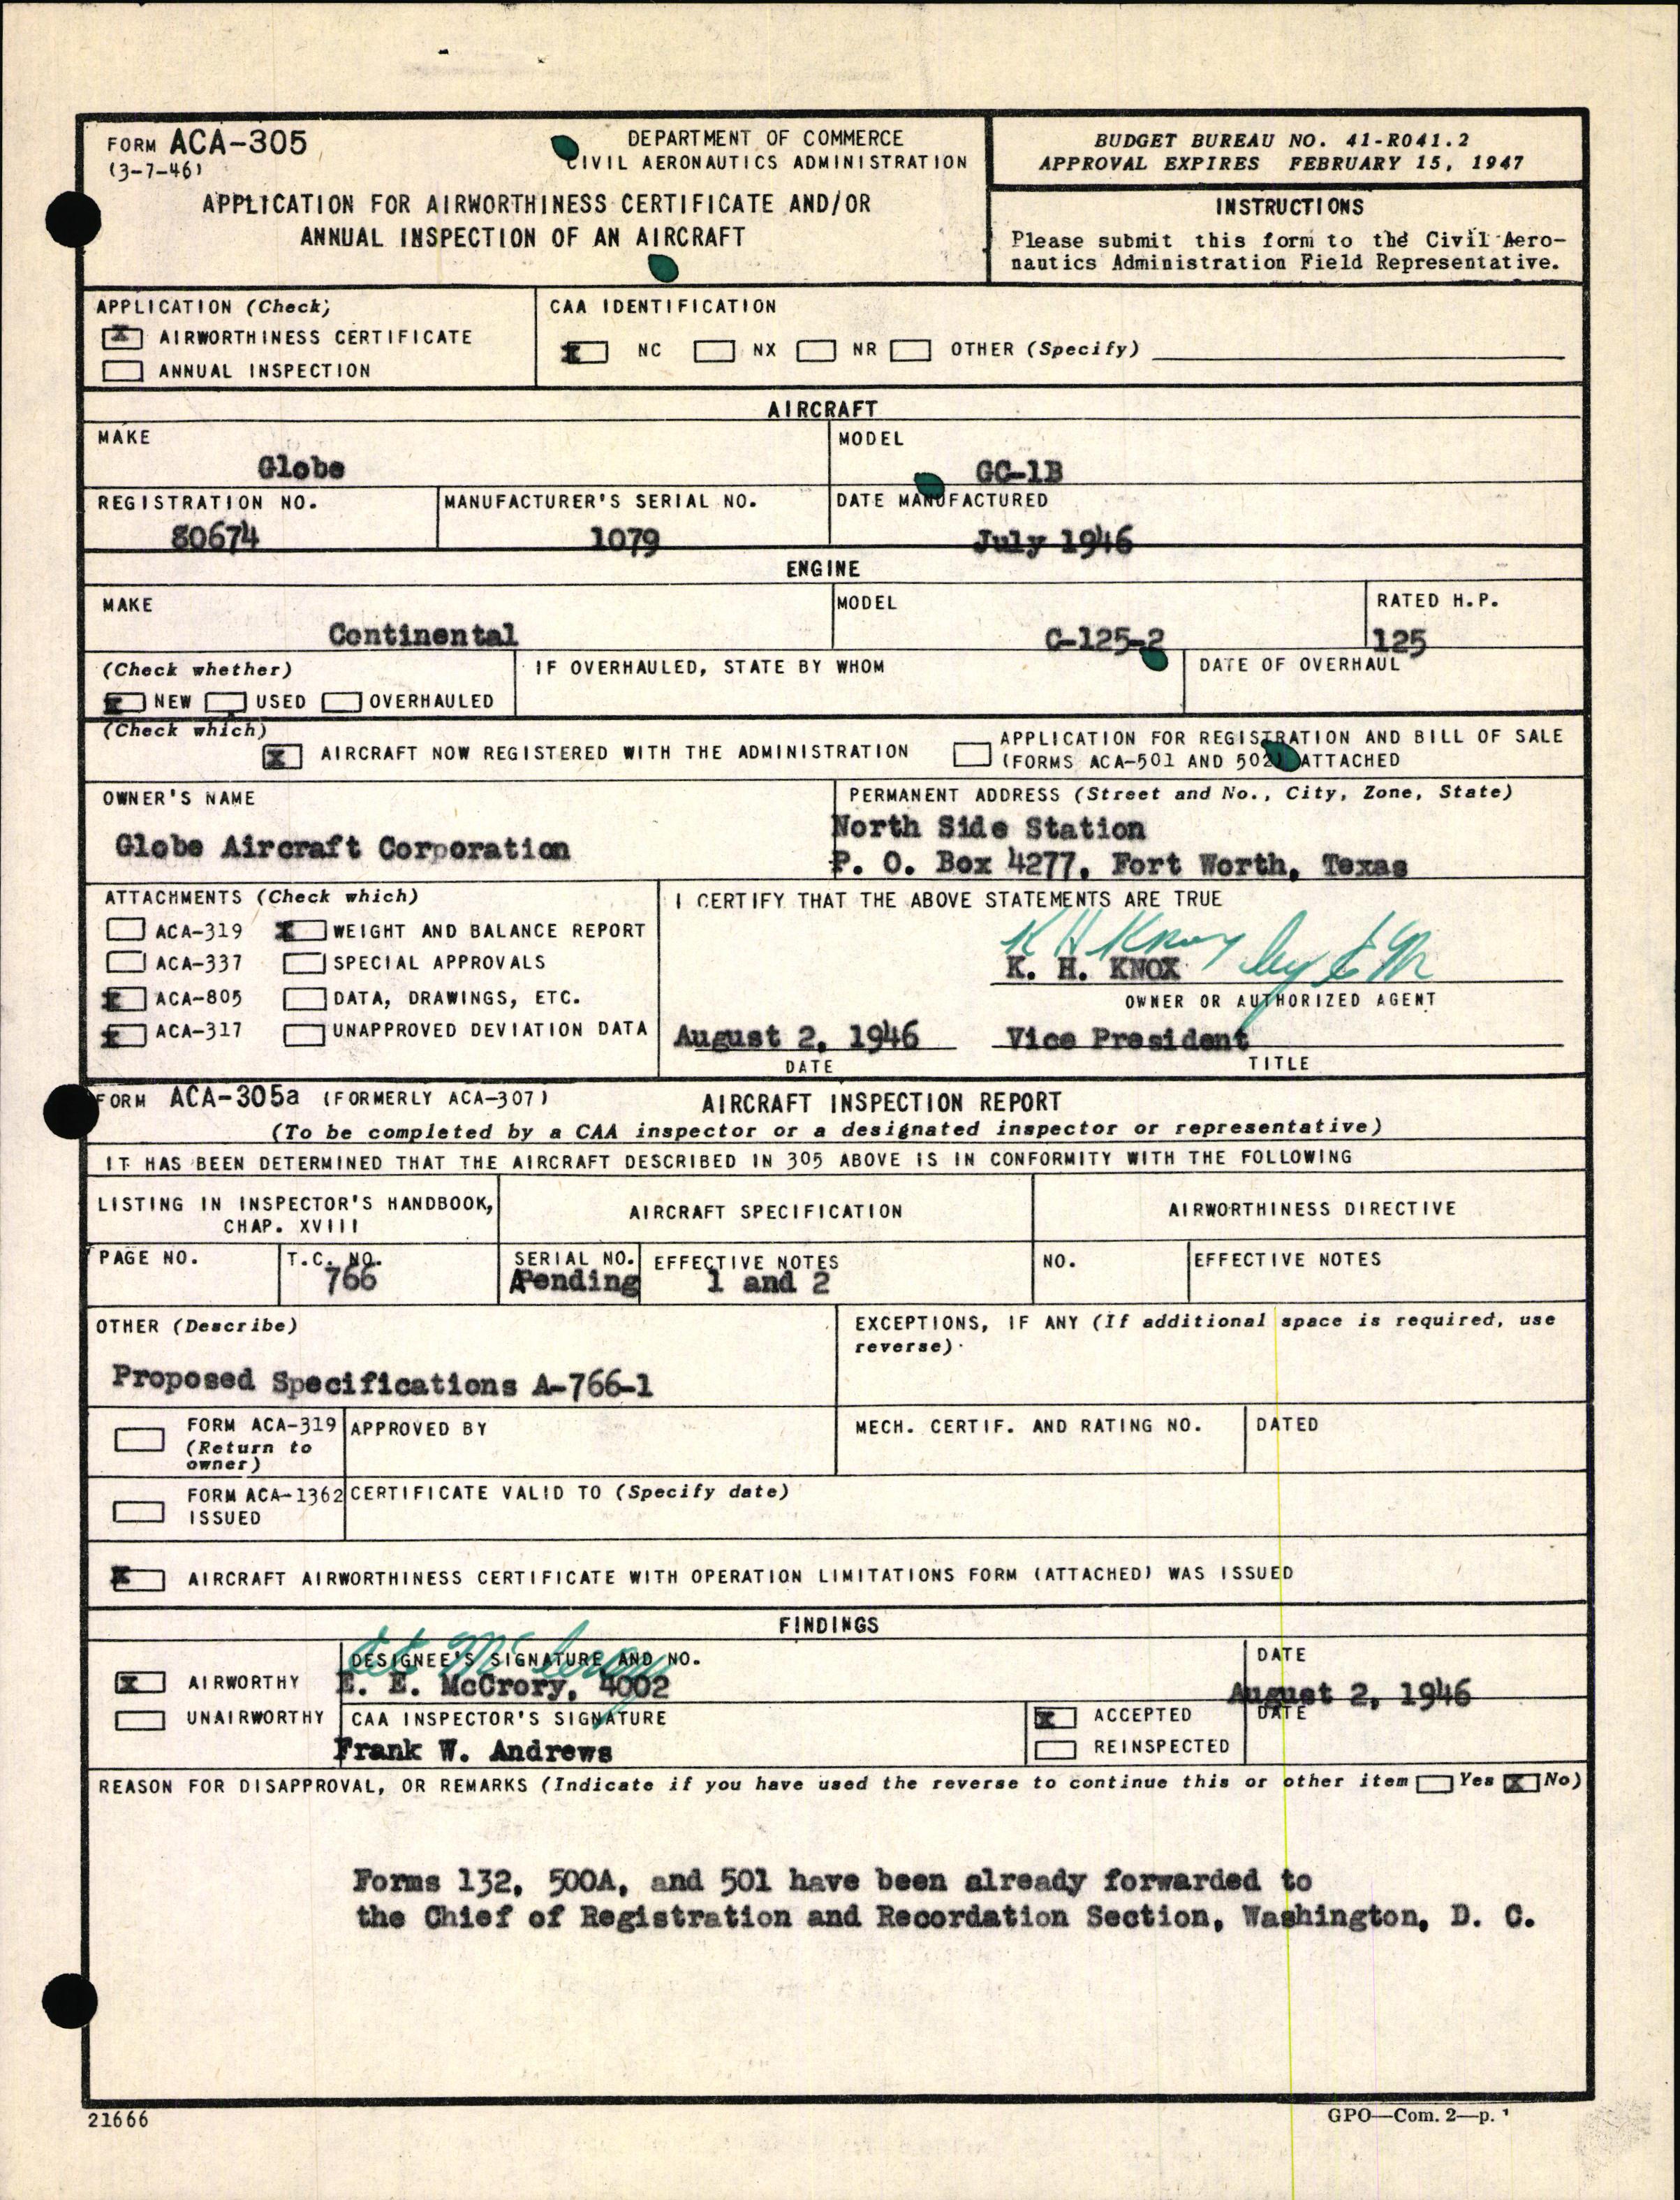 FORM ACA-305
(3-7-46)
DEPARTMENT OF COMMERCE
CIVIL AERONAUTICS ADMINISTRATION
APPLICATION FOR AIRWORTHINESS CERTIFICATE AND/OR
ANNUAL INSPECTION OF AN AIRCRAFT
BUDGET BUREAU NO. 41-R041.2
APPROVAL EXPIRES FEBRUARY 15, 1947
INSTRUCTIONS
Please submit this form to the Civil Aero-
nautics Administration Field Representative.
APPLICATION (Check)
X AIRWORTHINESS CERTIFICATE
ANNUAL INSPECTION
CAA IDENTIFICATION
X NC NX NR OTHER (Specify)
AIRCRAFT
MAKE
Globe
MODEL
GC-1B
REGISTRATION NO.
80674
MANUFACTURER'S SERIAL NO.
1079
DATE MANUFACTURED
July 1946
ENGINE
MAKE
Continental
MODEL
C-125-2
RATED H.P.
125
(Check whether)
X NEW USED OVERHAULED
IF OVERHAULED, STATE BY WHOM
DATE OF OVERHAUL
(Check which)
X AIRCRAFT NOW REGISTERED WITH THE ADMINISTRATION
APPLICATION FOR REGISTRATION AND BILL OF SALE
(FORMS ACA-501 AND 502) ATTACHED
OWNER'S NAME
Globe Aircraft Corporation
PERMANENT ADDRESS (Street and No., City, Zone, State)
North Side Station
P. O. Box 4277, Fort Worth, Texas
ATTACHMENTS (Check which)
ACA-319 X WEIGHT AND BALANCE REPORT
ACA-337 SPECIAL APPROVALS
X ACA-805 DATA, DRAWINGS, ETC.
X ACA-317 UNAPPROVED DEVIATION DATA
I CERTIFY THAT THE ABOVE STATEMENTS ARE TRUE
K H Knox by
K. H. KNOX
OWNER OR AUTHORIZED AGENT
August 2, 1946
DATE
Vice President
TITLE
FORM ACA-305a (FORMERLY ACA-307)
AIRCRAFT INSPECTION REPORT
(To be completed by a CAA inspector or a designated inspector or representative)
IT HAS BEEN DETERMINED THAT THE AIRCRAFT DESCRIBED IN 305 ABOVE IS IN CONFORMITY WITH THE FOLLOWING
LISTING IN INSPECTOR'S HANDBOOK,
CHAP. XVIII
AIRCRAFT SPECIFICATION
AIRWORTHINESS DIRECTIVE
PAGE NO.
T.C. NO.
766
SERIAL NO.
APending
EFFECTIVE NOTES
1 and 2
NO.
EFFECTIVE NOTES
OTHER (Describe)
Proposed Specifications A-766-1
EXCEPTIONS, IF ANY (If additional space is required, use
reverse)
FORM ACA-319
(Return to
owner)
APPROVED BY
MECH. CERTIF. AND RATING NO.
DATED
FORM ACA-1362
ISSUED
CERTIFICATE VALID TO (Specify date)
X AIRCRAFT AIRWORTHINESS CERTIFICATE WITH OPERATION LIMITATIONS FORM (ATTACHED) WAS ISSUED
FINDINGS
X AIRWORTHY
UNAIRWORTHY
E E McCrory
DESIGNEE'S SIGNATURE AND NO.
E. E. McCrory, 4002
DATE
August 2, 1946
CAA INSPECTOR'S SIGNATURE
Frank W. Andrews
X ACCEPTED
REINSPECTED
DATE
REASON FOR DISAPPROVAL, OR REMARKS (Indicate if you have used the reverse to continue this or other item Yes X No)
Forms 132, 500A, and 501 have been already forwarded to
the Chief of Registration and Recordation Section, Washington, D. C.
21666
GPO—Com. 2—p.